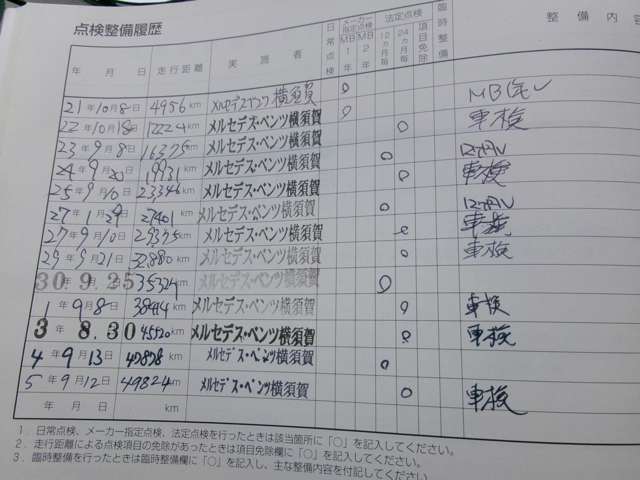 点検整備履歴
年 月 日 走行距離 実施者 日常点検 メーカー指定点検 MB1年 MB2年 法定点検 12カ月毎 24カ月毎 項目免除 臨時整備 整備内容
21年10月8日 4956km メルセデスベンツ横須賀 ○
22年10月18日 12224km メルセデス・ベンツ横須賀 ○ 車検
23年9月8日 16375km メルセデス・ベンツ横須賀
24年9月20日 19931km メルセデス・ベンツ横須賀 ○ 車検
25年9月10日 23346km メルセデス・ベンツ横須賀 ○
27年1月29日 27401km メルセデス・ベンツ横須賀 ○
27年9月10日 29375km メルセデス・ベンツ横須賀 ○ 車検
29年9月21日 32880km メルセデス・ベンツ横須賀 ○ 車検
30年9.25日 35324km メルセデス・ベンツ横須賀 ○
1年9月8日 38414km メルセデス・ベンツ横須賀 ○ 車検
3年8.30 45520km メルセデス・ベンツ横須賀 ○ 車検
4年9月13日 47878km メルセデス・ベンツ横須賀 ○
5年9月12日 49824km メルセデス・ベンツ横須賀 ○ 車検
年 月 日 km
1. 日常点検、メーカー指定点検、法定点検を行ったときは該当箇所に「○」を記入してください。
2. 走行距離による点検項目の免除があったときは項目免除欄に「○」を記入してください。
3. 臨時整備を行ったときは臨時整備欄に「○」を記入し、主な整備内容を付記してください。